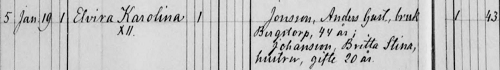 5 Jan. 19 1 Elvira Karolina 1 Jonsson, Anders Gust., bruk 1 43
XII. Bergstorp, 44 år;
Johansson, Britta Stina,
hustru, gifte 20 år.